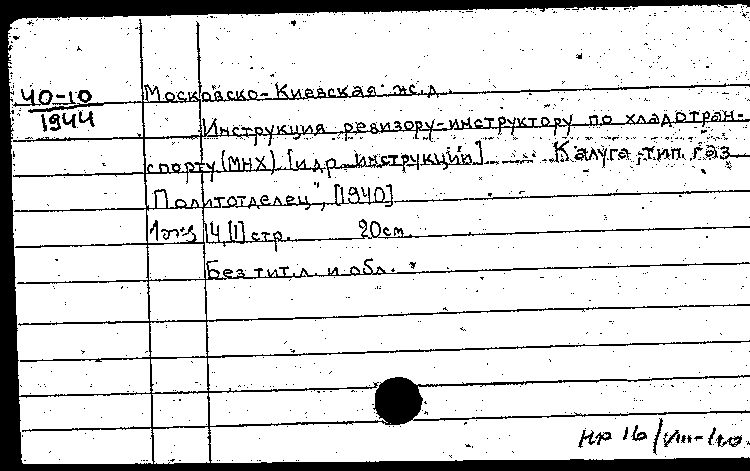 40-10
1944
Московско-Киевская ж.д.
Инструкция ревизору-инструктору по хладотран-
спорту (МНХ) [и др. инструкции] ... Калуга, тип. газ
"Политотделец", [1940]
1экз 14,[1] стр. 20см.
Без тит.л. и обл. *
Нр 16/VIII-